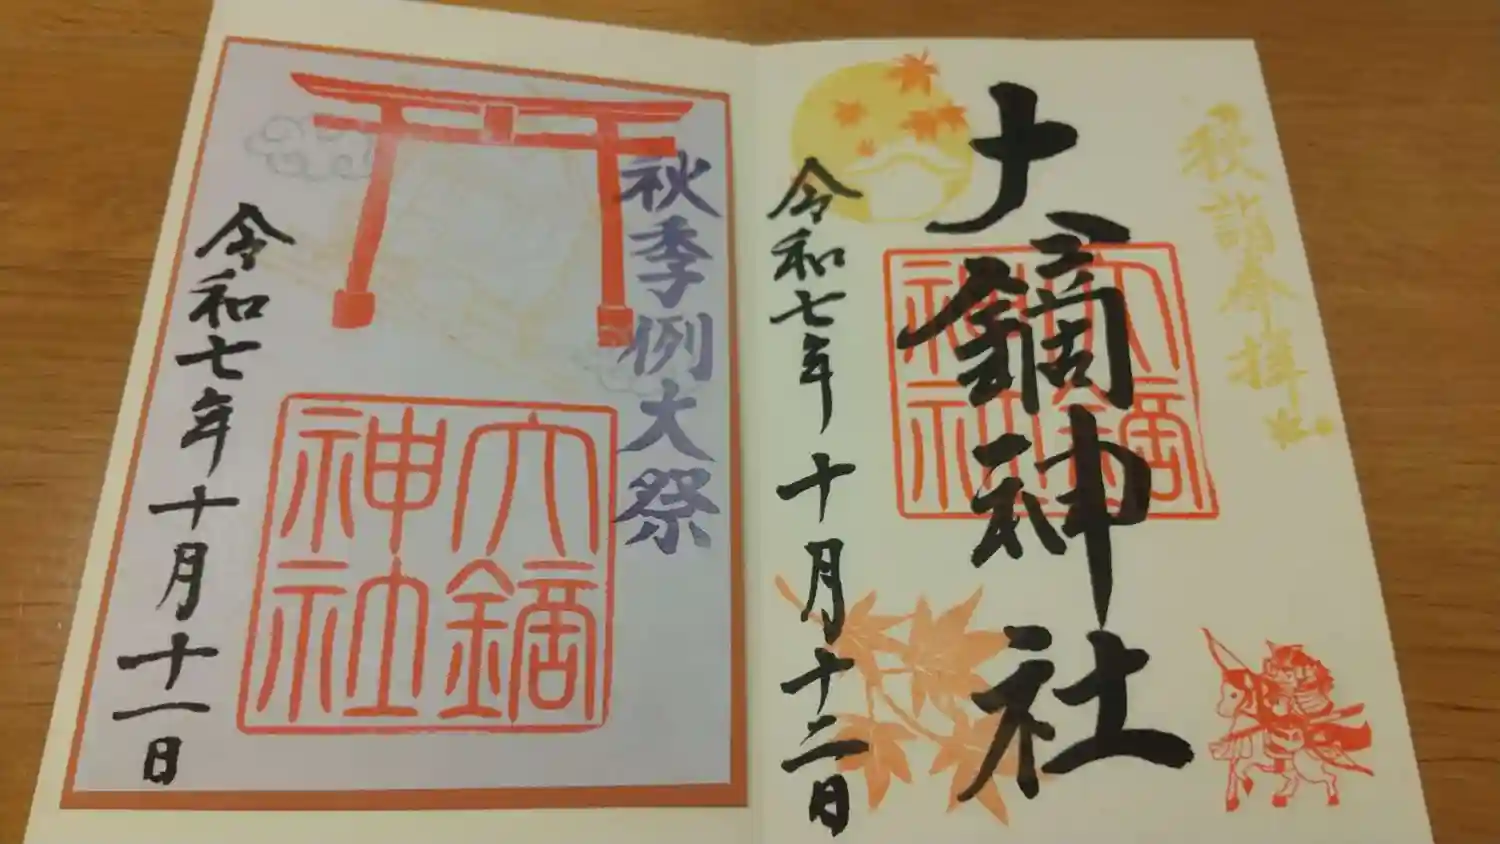 秋詣奉拝
大鏑神社
大鏑神社
令和七年 十月十二日
秋季例大祭
大鏑神社
令和七年十月十一日